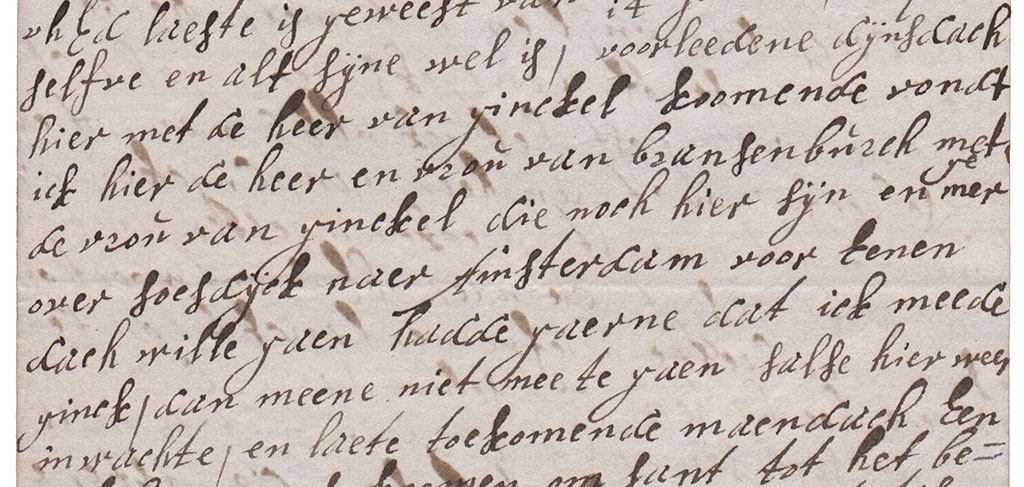 uhEd laeste is geweest van
selfve en alt sijne wel is, voorleedene dijnsdach
hier met de heer van ginckel koomende vondt
ick hier de heer en vroŭ van bransenbŭrch met
de vroŭ van ginckel die noch hier sijn en mer
over soesdijck naer Amsterdam voor eenen
dach wille gaen hadde gaerne dat ick meede
ginck, dan meene niet mee te gaen salse hier weer
inwachte, en laete toekomende maendach een
koomen om sant tot het be=